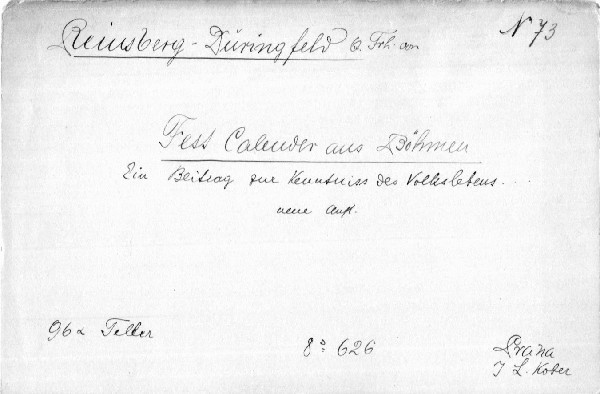 N 73
Reinsberg-Düringfeld O. Frh. von
Fest Calender aus Böhmen
Ein Beitrag zur Kenntniss des Volkslebens...
neue Aufl.
96 Teller
8° 626
Praha
I L. Kober